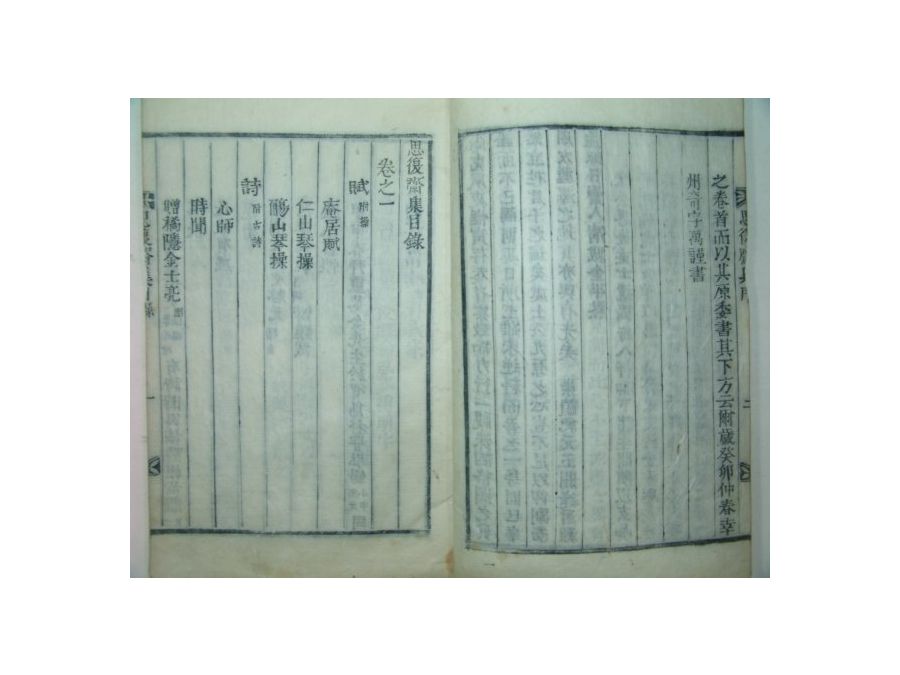 之卷首而以其原委書其下方云爾歲癸卯仲春幸
州奇宇萬謹書
思復齋集目錄
卷之一
賦 附操
庵居賦
仁山琴操
鷊山琴操
詩 附古詩
心師
時聞
贈橘隱金士亮